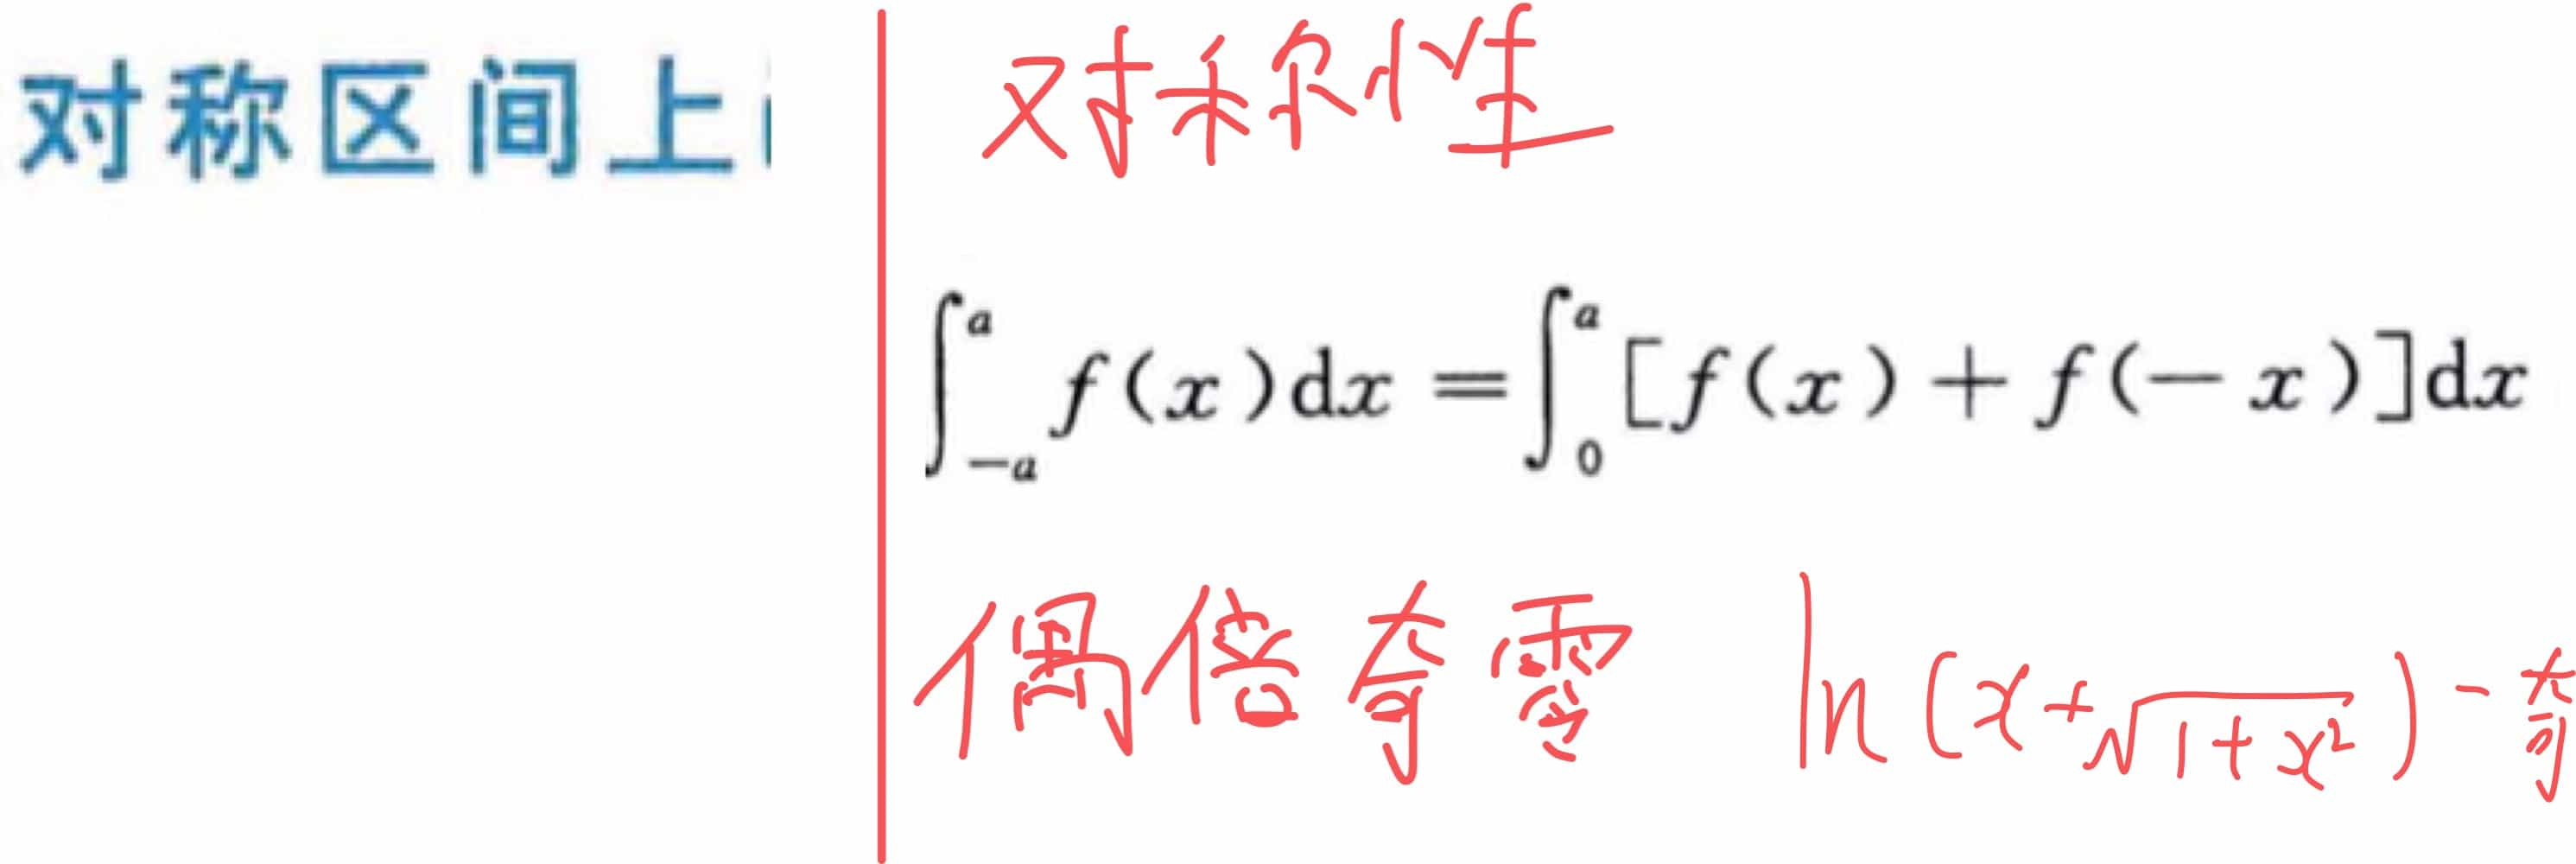 对称区间上
对称性
∫_{-a}^{a} f(x)dx = ∫_{0}^{a} [f(x) + f(-x)]dx
偶倍奇零 ln(x+√(1+x²)) - 奇